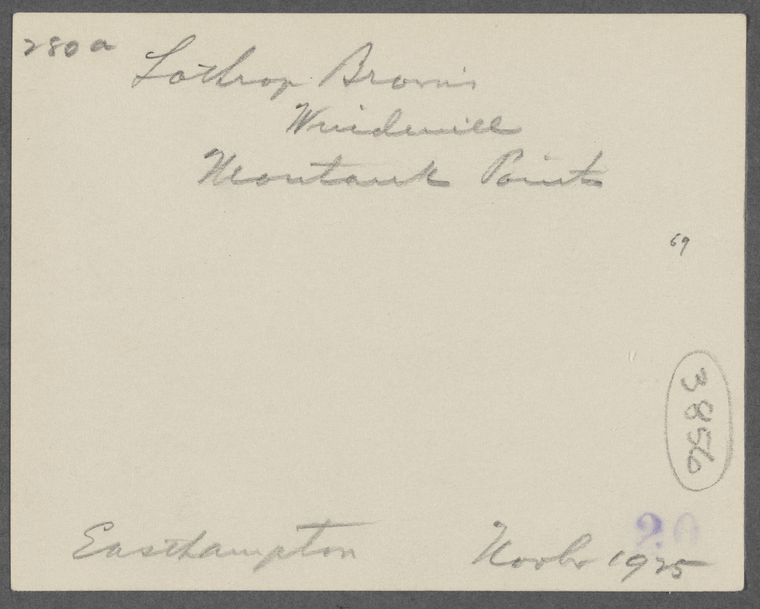 280a
Lothrop Brown's
Windmill
Montauk Point
69
3856
20
Easthampton 1925